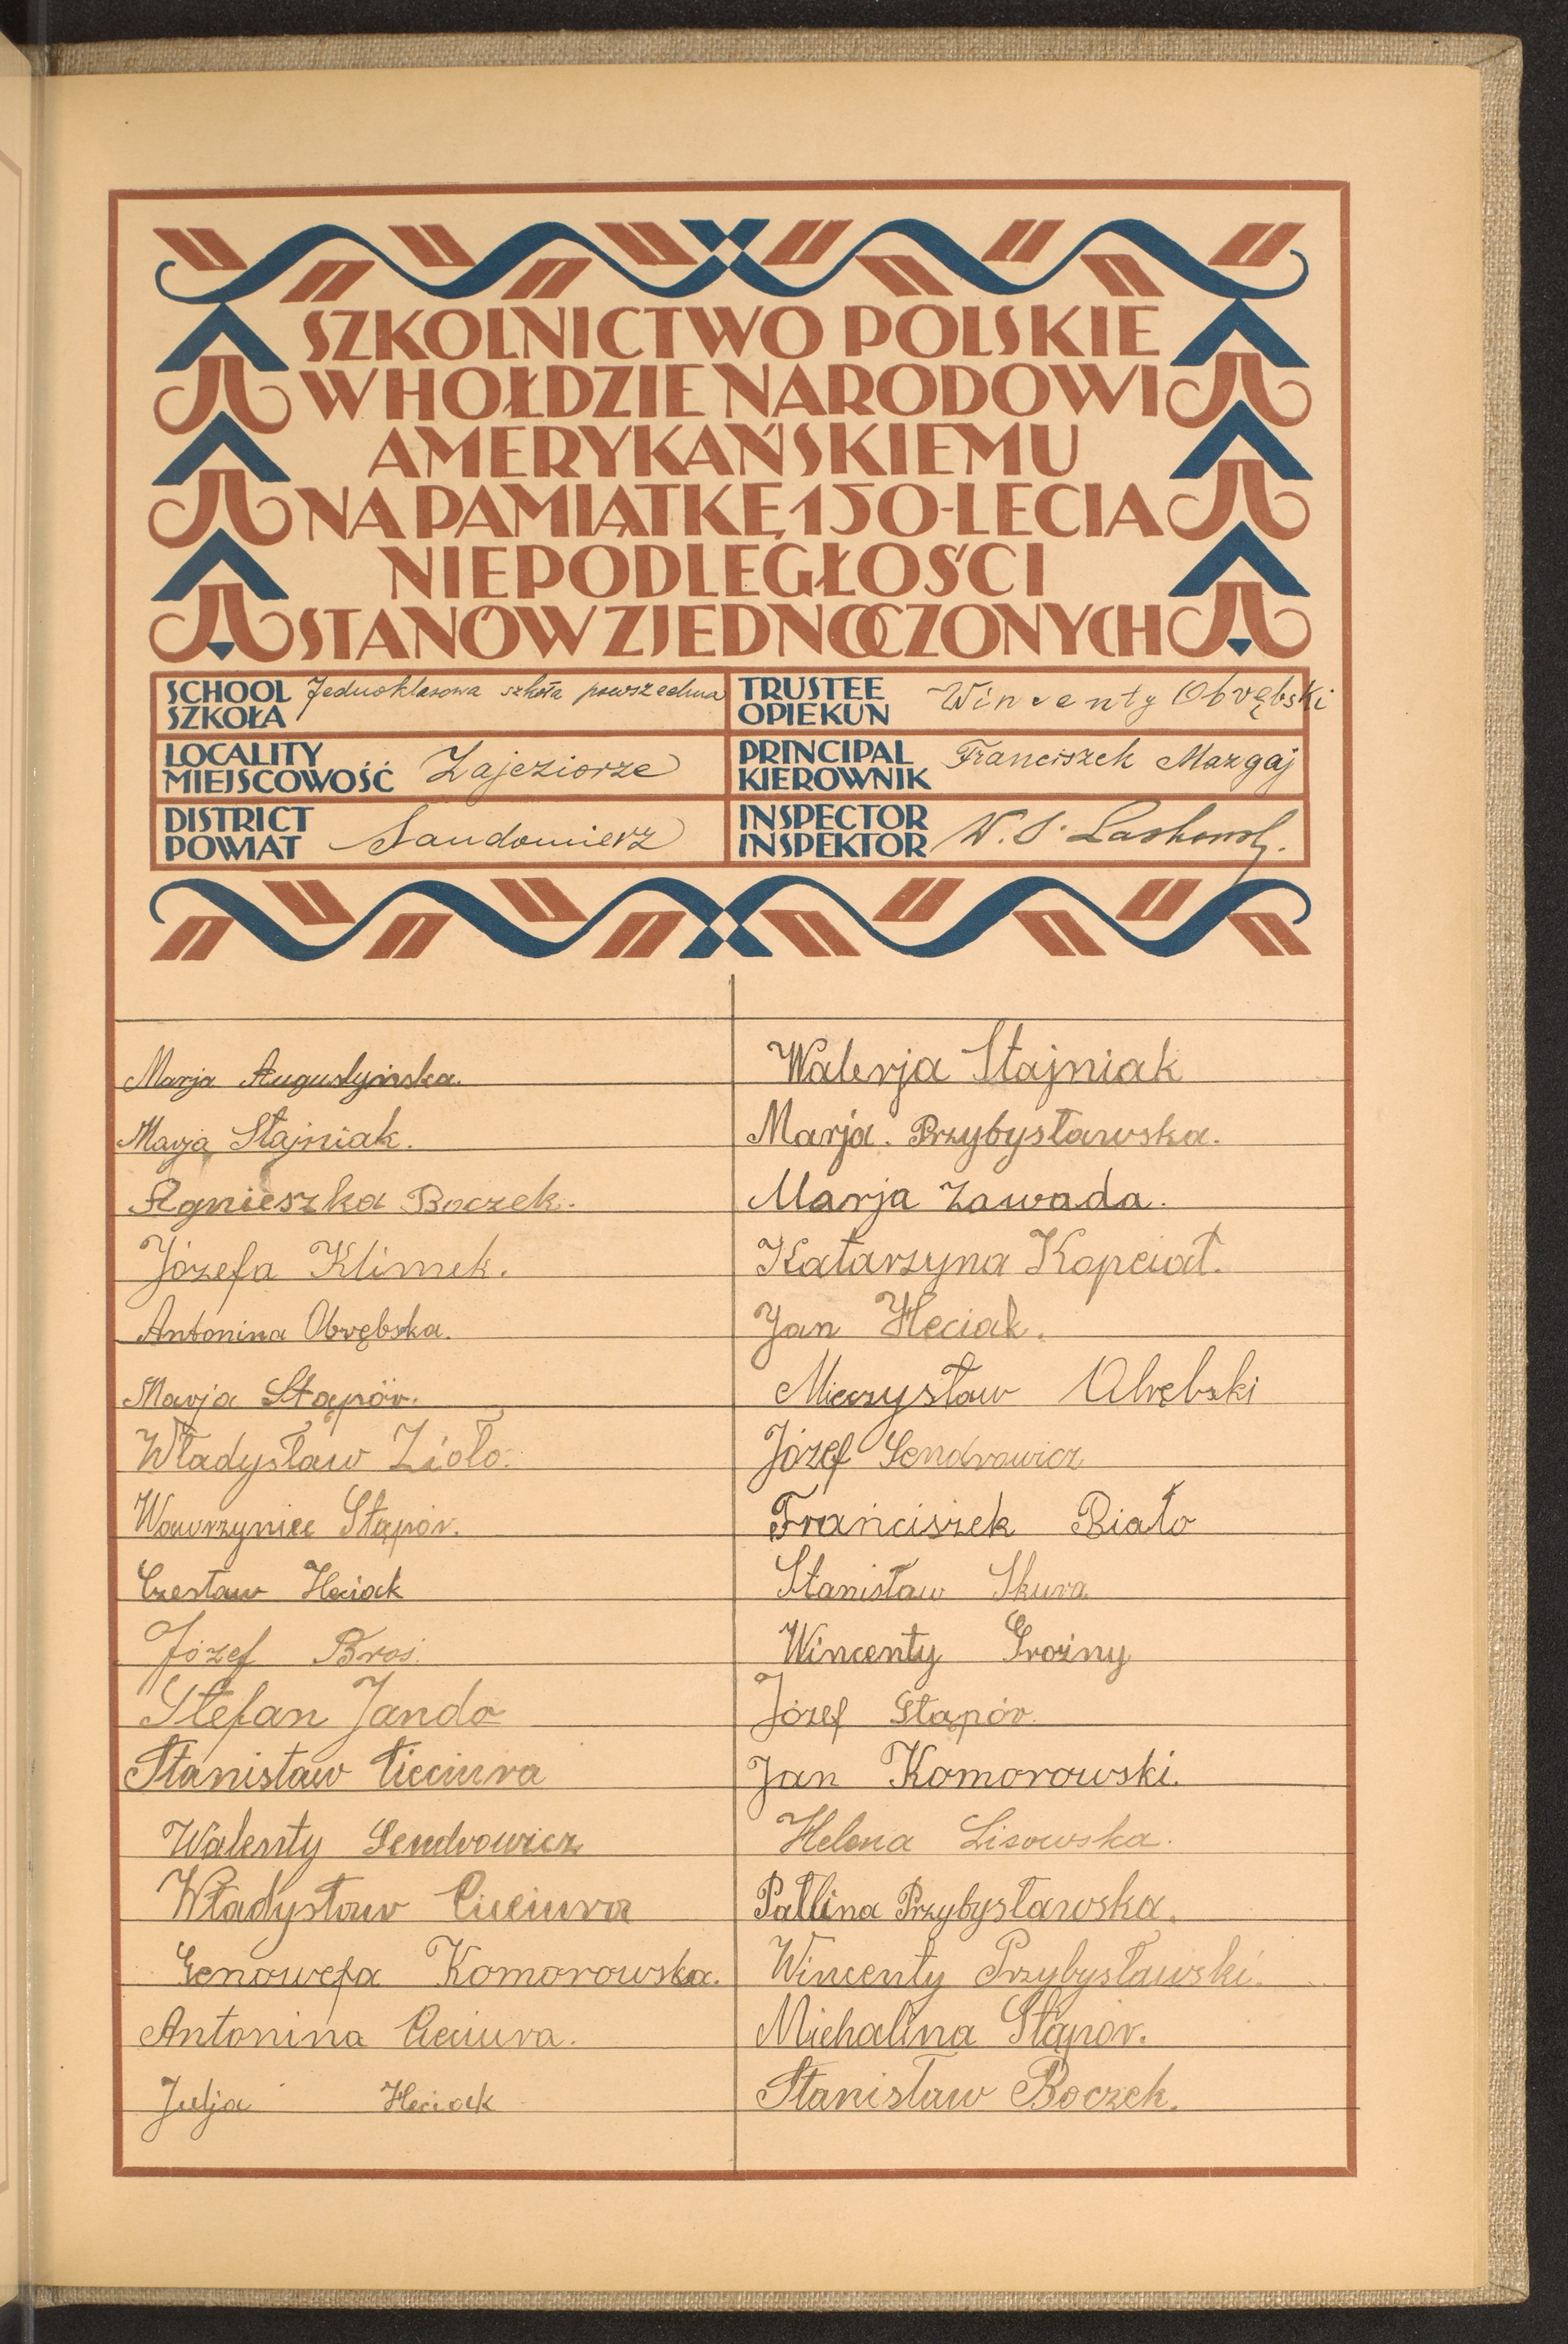 SZKOLNICTWO POLSKIE
W HOŁDZIE NARODOWI
AMERYKAŃSKIEMU
NA PAMIĄTKĘ 150-LECIA
NIEPODLEGŁOŚCI
STANÓW ZJEDNOCZONYCH
SCHOOL
SZKOŁA
Jednoklasowa szkoła powszechna
TRUSTEE
OPIEKUN
Wincenty Obrębski
LOCALITY
MIEJSCOWOŚĆ
Zajeziorze
PRINCIPAL
KIEROWNIK
Franciszek Mazgaj
DISTRICT
POWIAT
Sandomierz
INSPECTOR
INSPEKTOR
W. S. Laskowsk.
Marja Augustyńska.
Marja Stajniak.
Agnieszka Boczek.
Józefa Klimek.
Antonina Obrębska.
Marja Stąpór.
Władysław Zioło.
Wawrzyniec Stąpór.
Czesław Heciak
Józef Broś.
Stefan Jando
Stanisław Cieciura
Walenty Sendrowicz
Władysław Cieciura
Genowefa Komorowska.
Antonina Cieciura.
Julja Heciak
Walerja Stajniak
Marja. Przybysławska.
Marja Zawada.
Katarzyna Kopciał.
Jan Heciak.
Mieczysław Obrębski
Józef Sendrowicz
Franciszek Biało
Stanisław Skura
Wincenty Groźny
Józef Stąpór.
Jan Komorowski.
Helena Lisowska.
Pallina Przybysławska.
Wincenty Przybysławski.
Michalina Stąpór.
Stanisław Boczek.